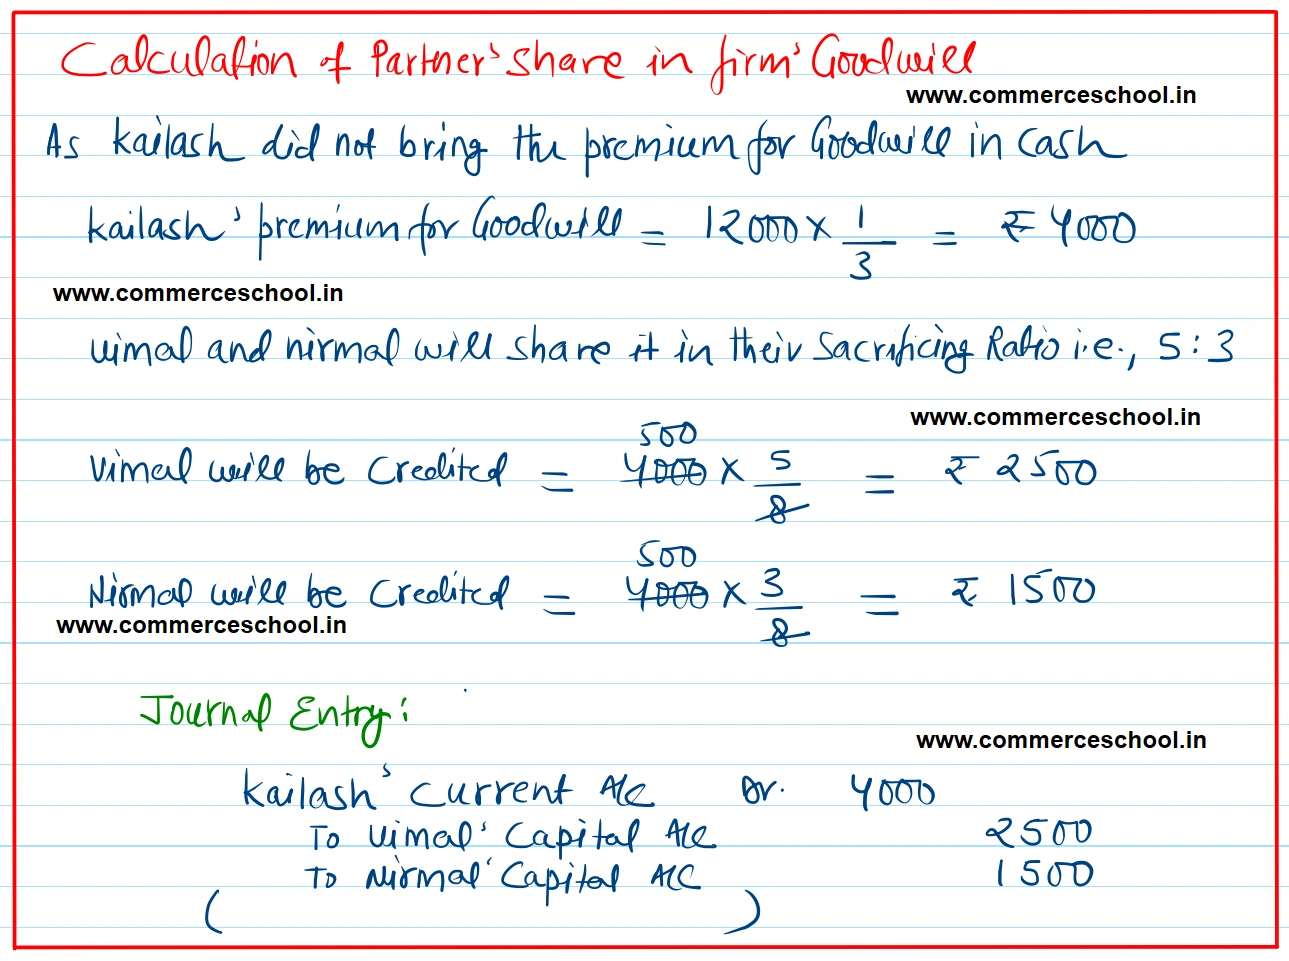 Calculation of Partner's share in firm's Goodwill
www.commerceschool.in
As kailash did not bring the premium for Goodwill in cash
kailash's premium for Goodwill = 12000 × 1/3 = ₹ 4000
www.commerceschool.in
vimal and nirmal will share it in their Sacrificing Ratio i.e., 5:3
www.commerceschool.in
500
Vimal will be Credited = 4000 × 5/8 = ₹ 2500
500
Nirmal will be Credited = 4000 × 3/8 = ₹ 1500
www.commerceschool.in
Journal Entry:
www.commerceschool.in
kailash's Current A/c Dr. 4000
To Vimal's Capital A/c 2500
To Nirmal' Capital A/c 1500
( )